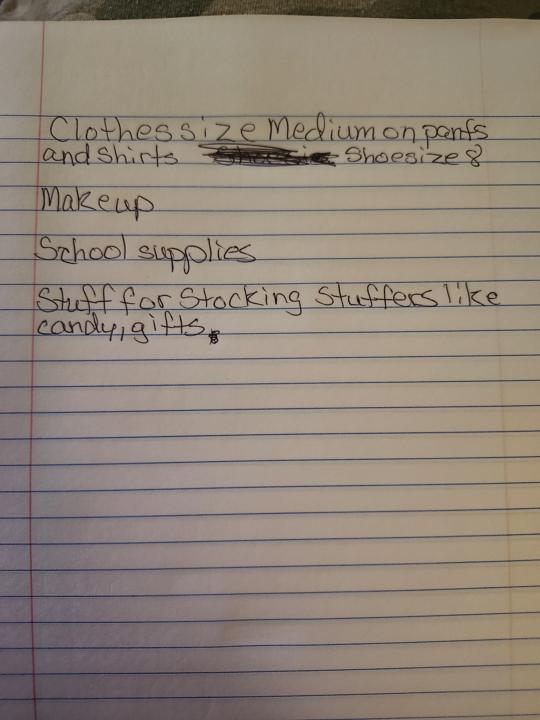 Clothes size Medium on pants
and Shirts Shoe size 8
Makeup
School supplies
Stuff for Stocking Stuffers like
candy, gifts.